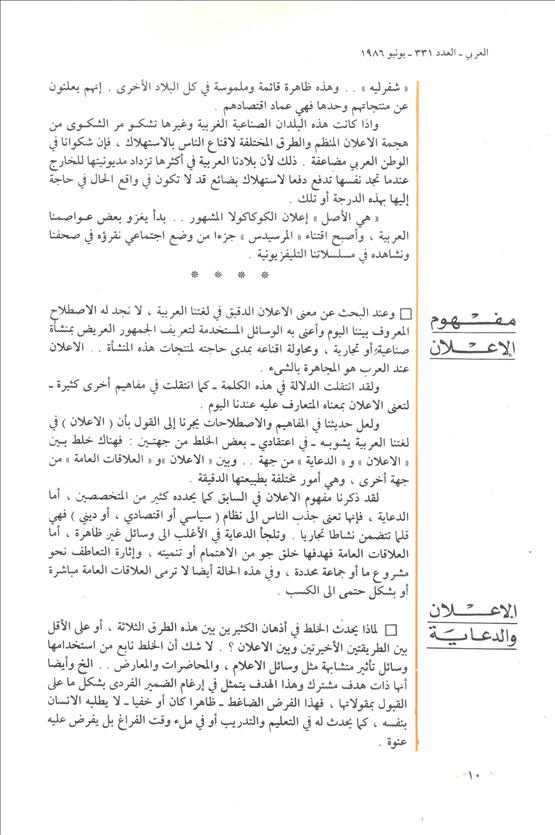 العربي ـ العدد ٣٣١ ـ يونيو ١٩٨٦
« شفرليه » . . وهذه ظاهرة قائمة وملموسة في كل البلاد الأخرى . إنهم يعلنون
عن منتجاتهم وحدها فهي عماد اقتصادهم .
واذا كانت هذه البلدان الصناعية الغربية وغيرها تشكو مر الشكوى من
هجمة الاعلان المنظم والطرق المختلفة لاقناع الناس بالاستهلاك ، فإن شكوانا في
الوطن العربي مضاعفة . ذلك لأن بلادنا العربية في أكثرها تزداد مديونيتها للخارج
عندما تجد نفسها تدفع دفعا لاستهلاك بضائع قد لا تكون في واقع الحال في حاجة
إليها بهذه الدرجة أو تلك .
« هي الأصل » إعلان الكوكاكولا المشهور . . بدأ يغزو بعض عواصمنا
العربية ، وأصبح اقتناء « المرسيدس » جزءا من وضع اجتماعي نقرؤه في صحفنا
ونشاهده في مسلسلاتنا التليفزيونية .
* * * *
مفهوم
الإعلان
□ وعند البحث عن معنى الاعلان الدقيق في لغتنا العربية ، لا نجد له الاصطلاح
المعروف بيننا اليوم وأعنى به الوسائل المستخدمة لتعريف الجمهور العريض بمنشأة
صناعية أو تجارية ، ومحاولة اقناعه بمدى حاجته لمنتجات هذه المنشأة . . الاعلان
عند العرب هو المجاهرة بالشىء .
ولقد انتقلت الدلالة في هذه الكلمة ـ كما انتقلت في مفاهيم أخرى كثيرة ـ
لتعنى الاعلان بمعناه المتعارف عليه عندنا اليوم .
ولعل حديثنا في المفاهيم والاصطلاحات يجرنا إلى القول بأن ( الاعلان ) في
لغتنا العربية يشوبه ـ في اعتقادي ـ بعض الخلط من جهتين : فهناك خلط بين
« الاعلان » و « الدعاية » من جهة . . وبين « الاعلان »و « العلاقات العامة » من
جهة أخرى ، وهي أمور مختلفة بطبيعتها الدقيقة .
لقد ذكرنا مفهوم الاعلان في السابق كما يحدده كثير من المتخصصين ، أما
الدعاية ، فإنها تعنى جذب الناس الى نظام ( سياسي أو اقتصادي ، أو ديني ) فهي
قلما تتضمن نشاطا تجاريا . وتلجأ الدعاية في الأغلب الى وسائل غير ظاهرة ، أما
العلاقات العامة فهدفها خلق جو من الاهتمام أو تنميته ، وإثارة التعاطف نحو
مشروع ما أو جماعة محددة ، وفي هذه الحالة أيضا لا ترمى العلاقات العامة مباشرة
أو بشكل حتمى الى الكسب .
الإعلان
والدعاية
□ لماذا يحدث الخلط في أذهان الكثيرين بين هذه الطرق الثلاثة ، أو على الأقل
بين الطريقتين الأخيرتين وبين الاعلان ؟ . لا شك أن الخلط نابع من استخدامها
وسائل تأثير متشابهة مثل وسائل الاعلام ، والمحاضرات والمعارض . . الخ وأيضا
أنها ذات هدف مشترك وهذا الهدف يتمثل في إرغام الضمير الفردى بشكل ما على
القبول بمقولاتها ، فهذا الفرض الضاغط ـ ظاهرا كان أو خفيا ـ لا يطلبه الانسان
بنفسه ، كما يحدث له في التعليم والتدريب أو في ملء وقت الفراغ بل يفرض عليه
عنوة .
١٠